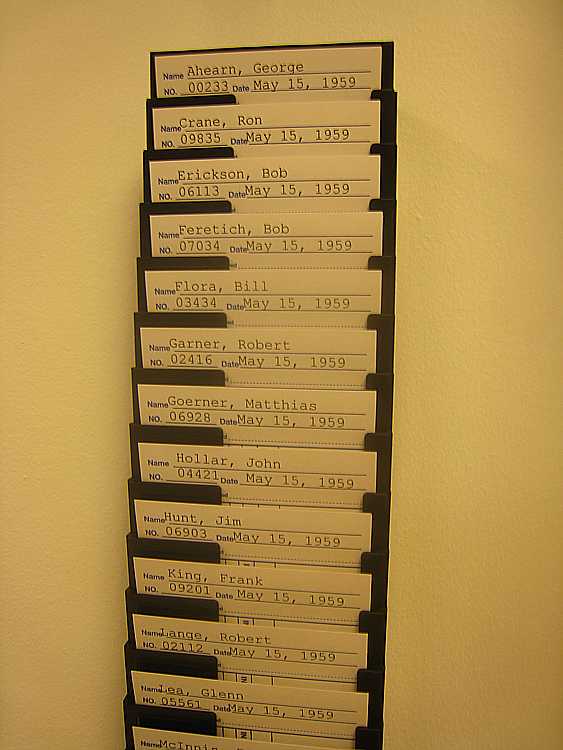 Name Ahearn, George
NO. 00233 Date May 15, 1959
Name Crane, Ron
NO. 09835 Date May 15, 1959
Name Erickson, Bob
NO. 06113 Date May 15, 1959
Name Feretich, Bob
NO. 07034 Date May 15, 1959
Name Flora, Bill
NO. 03434 Date May 15, 1959
Name Garner, Robert
NO. 02416 Date May 15, 1959
Name Goerner, Matthias
NO. 06928 Date May 15, 1959
Name Hollar, John
NO. 04421 Date May 15, 1959
Name Hunt, Jim
NO. 06903 Date May 15, 1959
Name King, Frank
NO. 09201 Date May 15, 1959
Name Lange, Robert
NO. 02112 Date May 15, 1959
Name Lea, Glenn
NO. 05561 Date May 15, 1959
Name